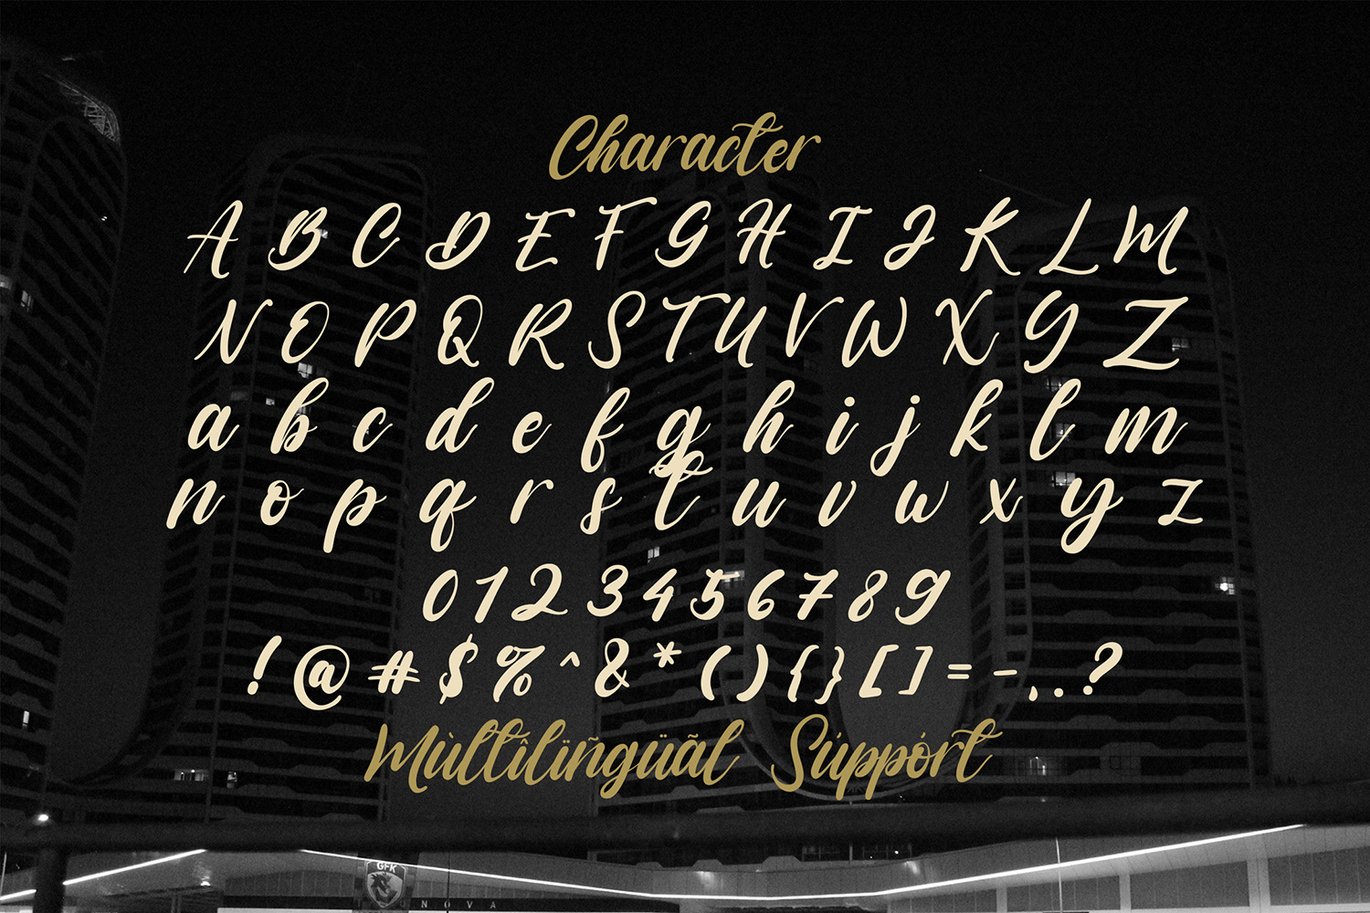 Character
A B C D E F G H I J K L M
N O P Q R S T U V W X Y Z
a b c d e f g h i j k l m
n o p q r s t u v w x y z
0 1 2 3 4 5 6 7 8 9
! @ # $ % ^ & * ( ) { } [ ] = - , . ?
Mùltîlïñgüãl Súppórt
GFK
NOVA